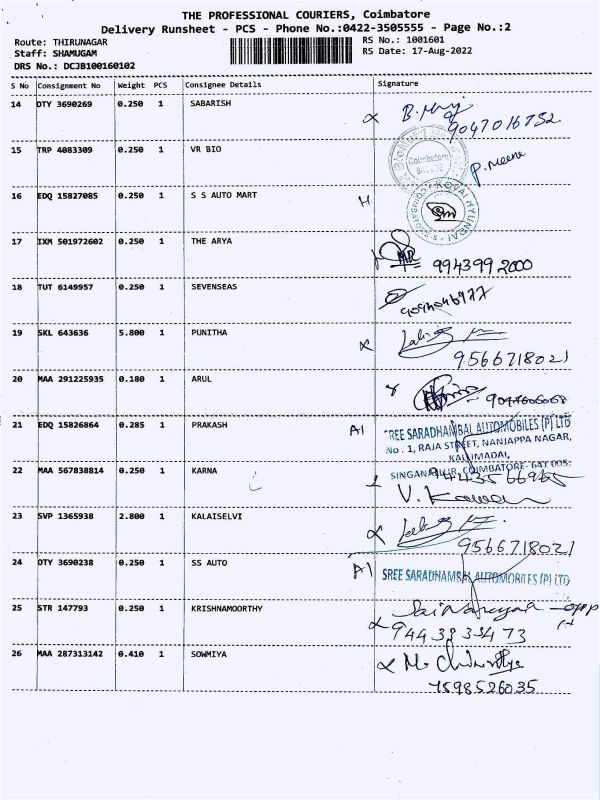 THE PROFESSIONAL COURIERS, Coimbatore
Delivery Runsheet - PCS - Phone No.:0422-3505555 - Page No.:2
Route: THIRUNAGAR
Staff: SHAMUGAM
DRS No.: DCJB100160102
RS No.: 1001601
RS Date: 17-Aug-2022
S No Consignment No Weight PCS Consignee Details Signature
14 OTY 3690269 0.250 1 SABARISH
9047016752
15 TRP 4083309 0.250 1 VR BIO
Coimbatore
P. Meena
16 EDQ 15827085 0.250 1 S S AUTO MART
KOVAI HYUNDAI
17 IXM 501972602 0.250 1 THE ARYA
9943992000
18 TUT 6149957 0.250 1 SEVENSEAS
19 SKL 643636 5.800 1 PUNITHA
9566718021
20 MAA 291225935 0.180 1 ARUL
21 EDQ 15826864 0.285 1 PRAKASH A1
SREE SARADHAMBAL AUTOMOBILES (P) LTD
No. 1, RAJA STREET, NANJAPPA NAGAR,
KALLIMADAI,
SINGANALLUR, COIMBATORE-641 005.
22 MAA 567838814 0.250 1 KARNA
23 SVP 1365938 2.800 1 KALAISELVI
9566718021
24 OTY 3690238 0.250 1 SS AUTO A1
SREE SARADHAMBAL AUTOMOBILES (P) LTD
25 STR 147793 0.250 1 KRISHNAMOORTHY
26 MAA 287313142 0.410 1 SOWMIYA
7598526035